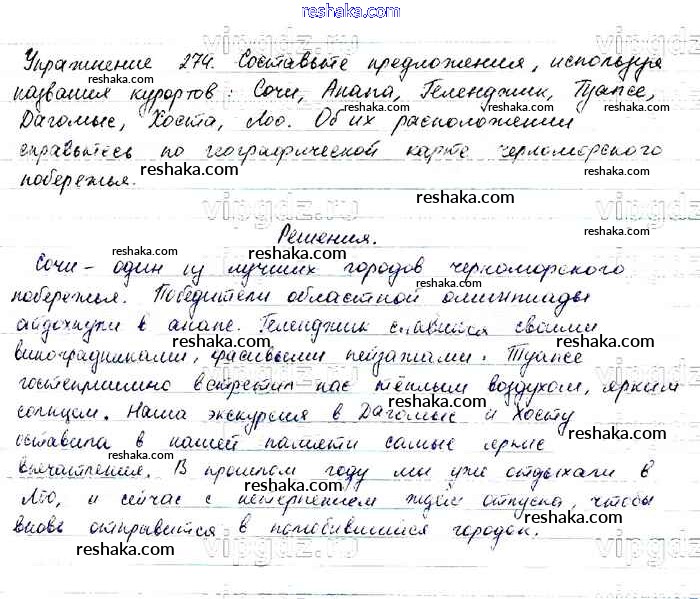 reshaka.com
Упражнение 274. Составьте предложения, используя
названия курортов: Сочи, Анапа, Геленджик, Туапсе,
Дагомыс, Хоста, Лоо. Об их расположении
справьтесь по географической карте черноморского
побережья.
Решения.
Сочи - один из лучших городов черноморского
побережья. Победители областной олимпиады
отдохнули в анапе. Геленджик славится своими
виноградниками, красивыми пейзажами. Туапсе
гостеприимно встретил нас тёплым воздухом, ярким
солнцем. Наша экскурсия в Дагомыс и Хосту
оставила в нашей памяти самые яркие
впечатления. В прошлом году мы уже отдыхали в
Лоо, и сейчас с нетерпением ждём отпуска, чтобы
вновь отправится в полюбившийся городок.